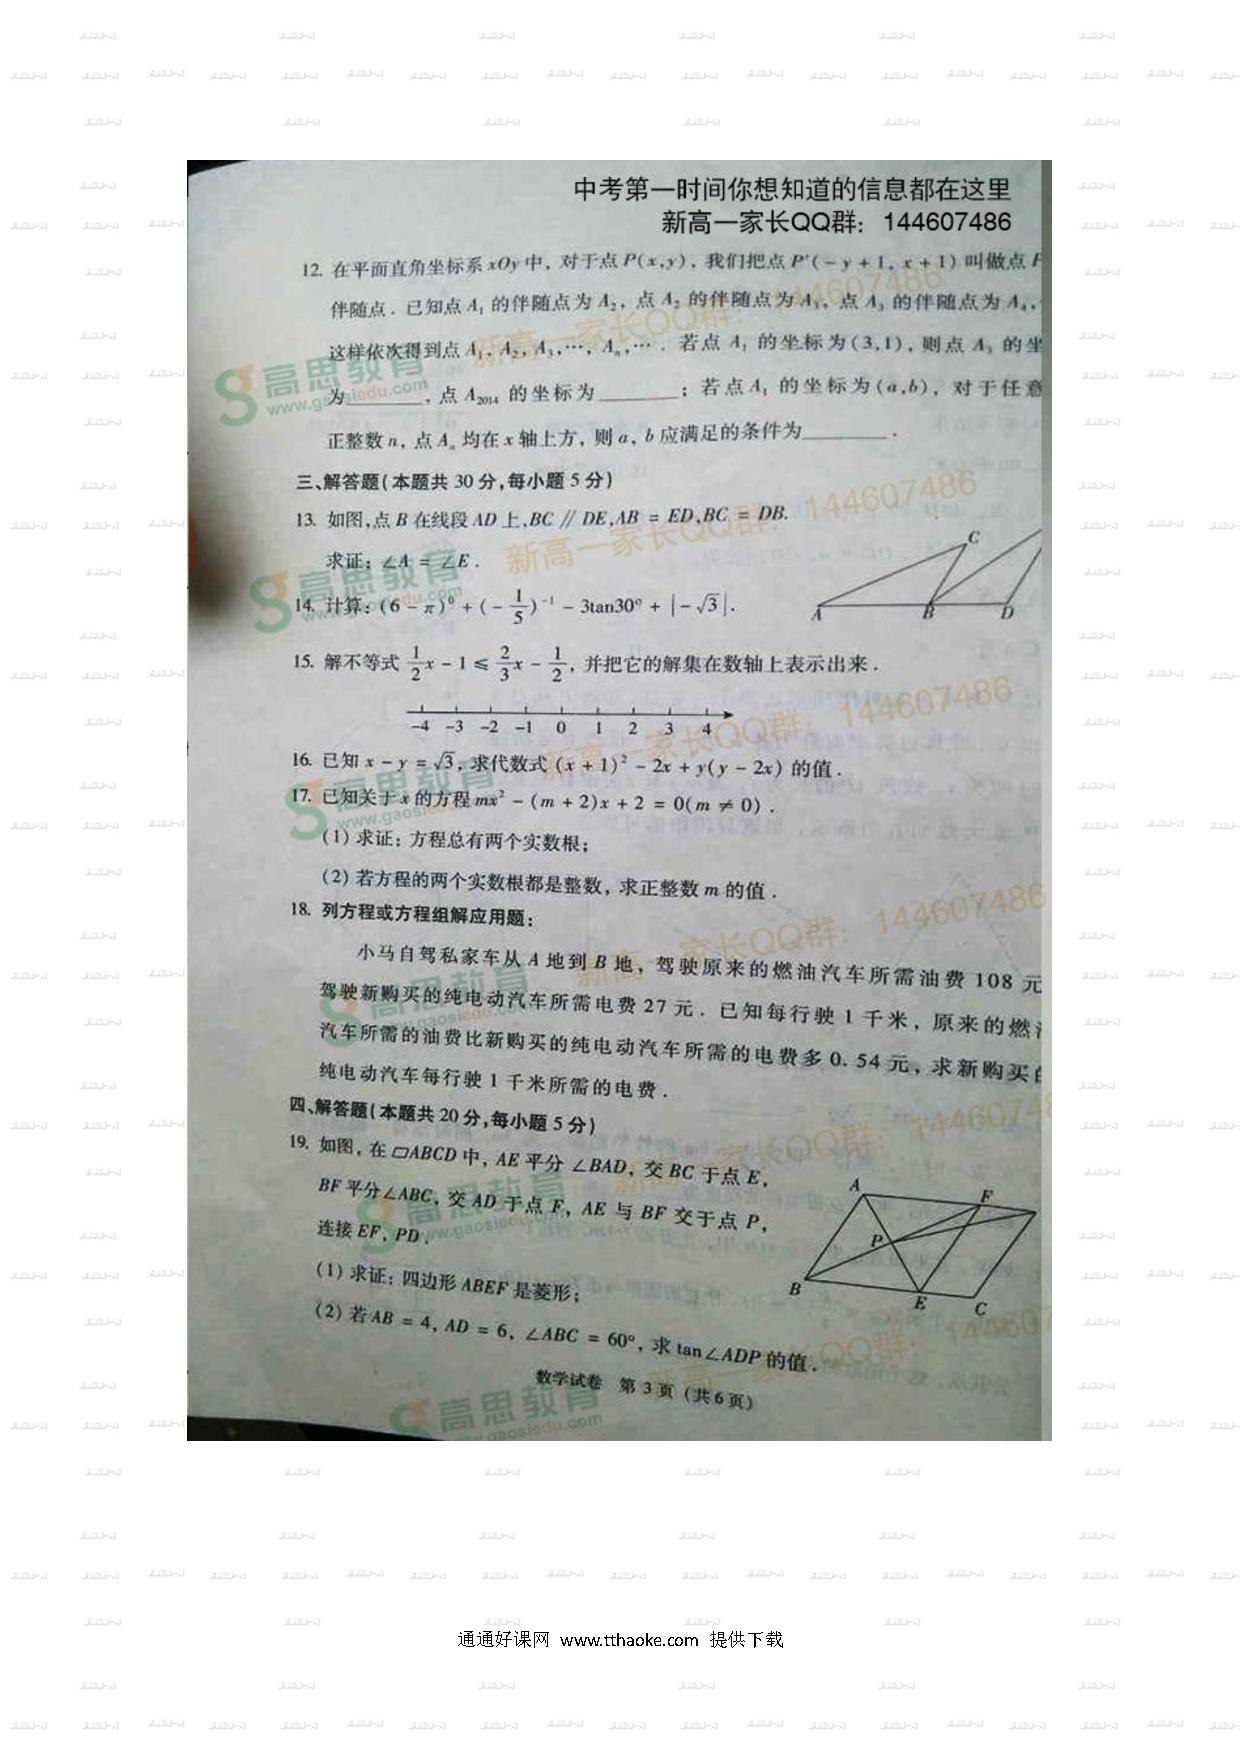 中考第一时间你想知道的信息都在这里
新高一家长QQ群：144607486
12. 在平面直角坐标系 xOy 中，对于点 P(x,y)，我们把点 P'(-y+1, x+1) 叫做点 P
伴随点．已知点 A₁ 的伴随点为 A₂，点 A₂ 的伴随点为 A₃，点 A₃ 的伴随点为 A₄，
这样依次得到点 A₁，A₂，A₃，…，Aₙ，…．若点 A₁ 的坐标为(3,1)，则点 A₃ 的坐
为________，点 A₂₀₁₄ 的坐标为________；若点 A₁ 的坐标为(a,b)，对于任意
正整数 n，点 Aₙ 均在 x 轴上方，则 a，b 应满足的条件为________．
三、解答题(本题共 30 分，每小题 5 分)
13. 如图，点 B 在线段 AD 上，BC // DE，AB = ED，BC = DB.
求证：∠A = ∠E．
14. 计算：(6 - π)⁰ + (-1/5)⁻¹ - 3tan30° + |-√3|.
15. 解不等式 1/2 x - 1 ≤ 2/3 x - 1/2，并把它的解集在数轴上表示出来．
-4 -3 -2 -1 0 1 2 3 4
16. 已知 x - y = √3，求代数式 (x + 1)² - 2x + y(y - 2x) 的值．
17. 已知关于 x 的方程 mx² - (m + 2)x + 2 = 0(m ≠ 0)．
(1) 求证：方程总有两个实数根；
(2) 若方程的两个实数根都是整数，求正整数 m 的值．
18. 列方程或方程组解应用题：
小马自驾私家车从 A 地到 B 地，驾驶原来的燃油汽车所需油费 108 元
驾驶新购买的纯电动汽车所需电费 27 元．已知每行驶 1 千米，原来的燃
汽车所需的油费比新购买的纯电动汽车所需的电费多 0.54 元，求新购买
纯电动汽车每行驶 1 千米所需的电费．
四、解答题(本题共 20 分，每小题 5 分)
19. 如图，在▱ABCD 中，AE 平分 ∠BAD，交 BC 于点 E，
BF 平分∠ABC，交 AD 于点 F，AE 与 BF 交于点 P，
连接 EF，PD．
(1) 求证：四边形 ABEF 是菱形；
(2) 若 AB = 4，AD = 6，∠ABC = 60°，求 tan∠ADP 的值．
A B C D
A F P B E C
数学试卷 第 3 页 (共 6 页)
高思教育
www.gaosiedu.com
新高一家长QQ群：144607486
通通好课网 www.tthaoke.com 提供下载